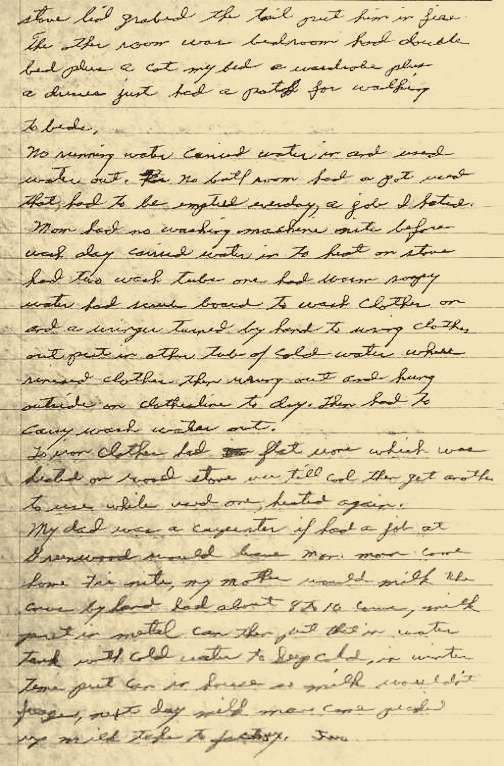 stove lid grabed the tail put him in fire
The other room was bedroom had double
bed plus a cot my bed a wardrobe plus
a dresser just had a path for walking
to beds.
No running water carried water in and used
water out. No bath room had a pot used
that, had to be emptied everday, a job I hated.
Mom had no washing machine nite before
wash day carried water in to heat on stove
had two wash tubs one had warm soapy
water had scrub board to wash clothes on
and a wringer turned by hand to wring clothes
out put in other tub of cold water where
rinsed clothes then wrung out and hung
outside on clothesline to dry. Then had to
carry wash water out.
To iron clothes had flat irons which was
heated on wood stove use till cool then get another
to use while used one, heated again.
My dad was a carpenter if had a job at
Greenwood would leave Mon. morn come
home Fri nite, my mother would milk the
cows by hand had about 8 to 10 cows, milk
put in metal can then put that in water
tank with cold water to keep cold, in winter
time put can in house so milk wouldn't
freeze, next day milk man came picked
up milk take to factory.